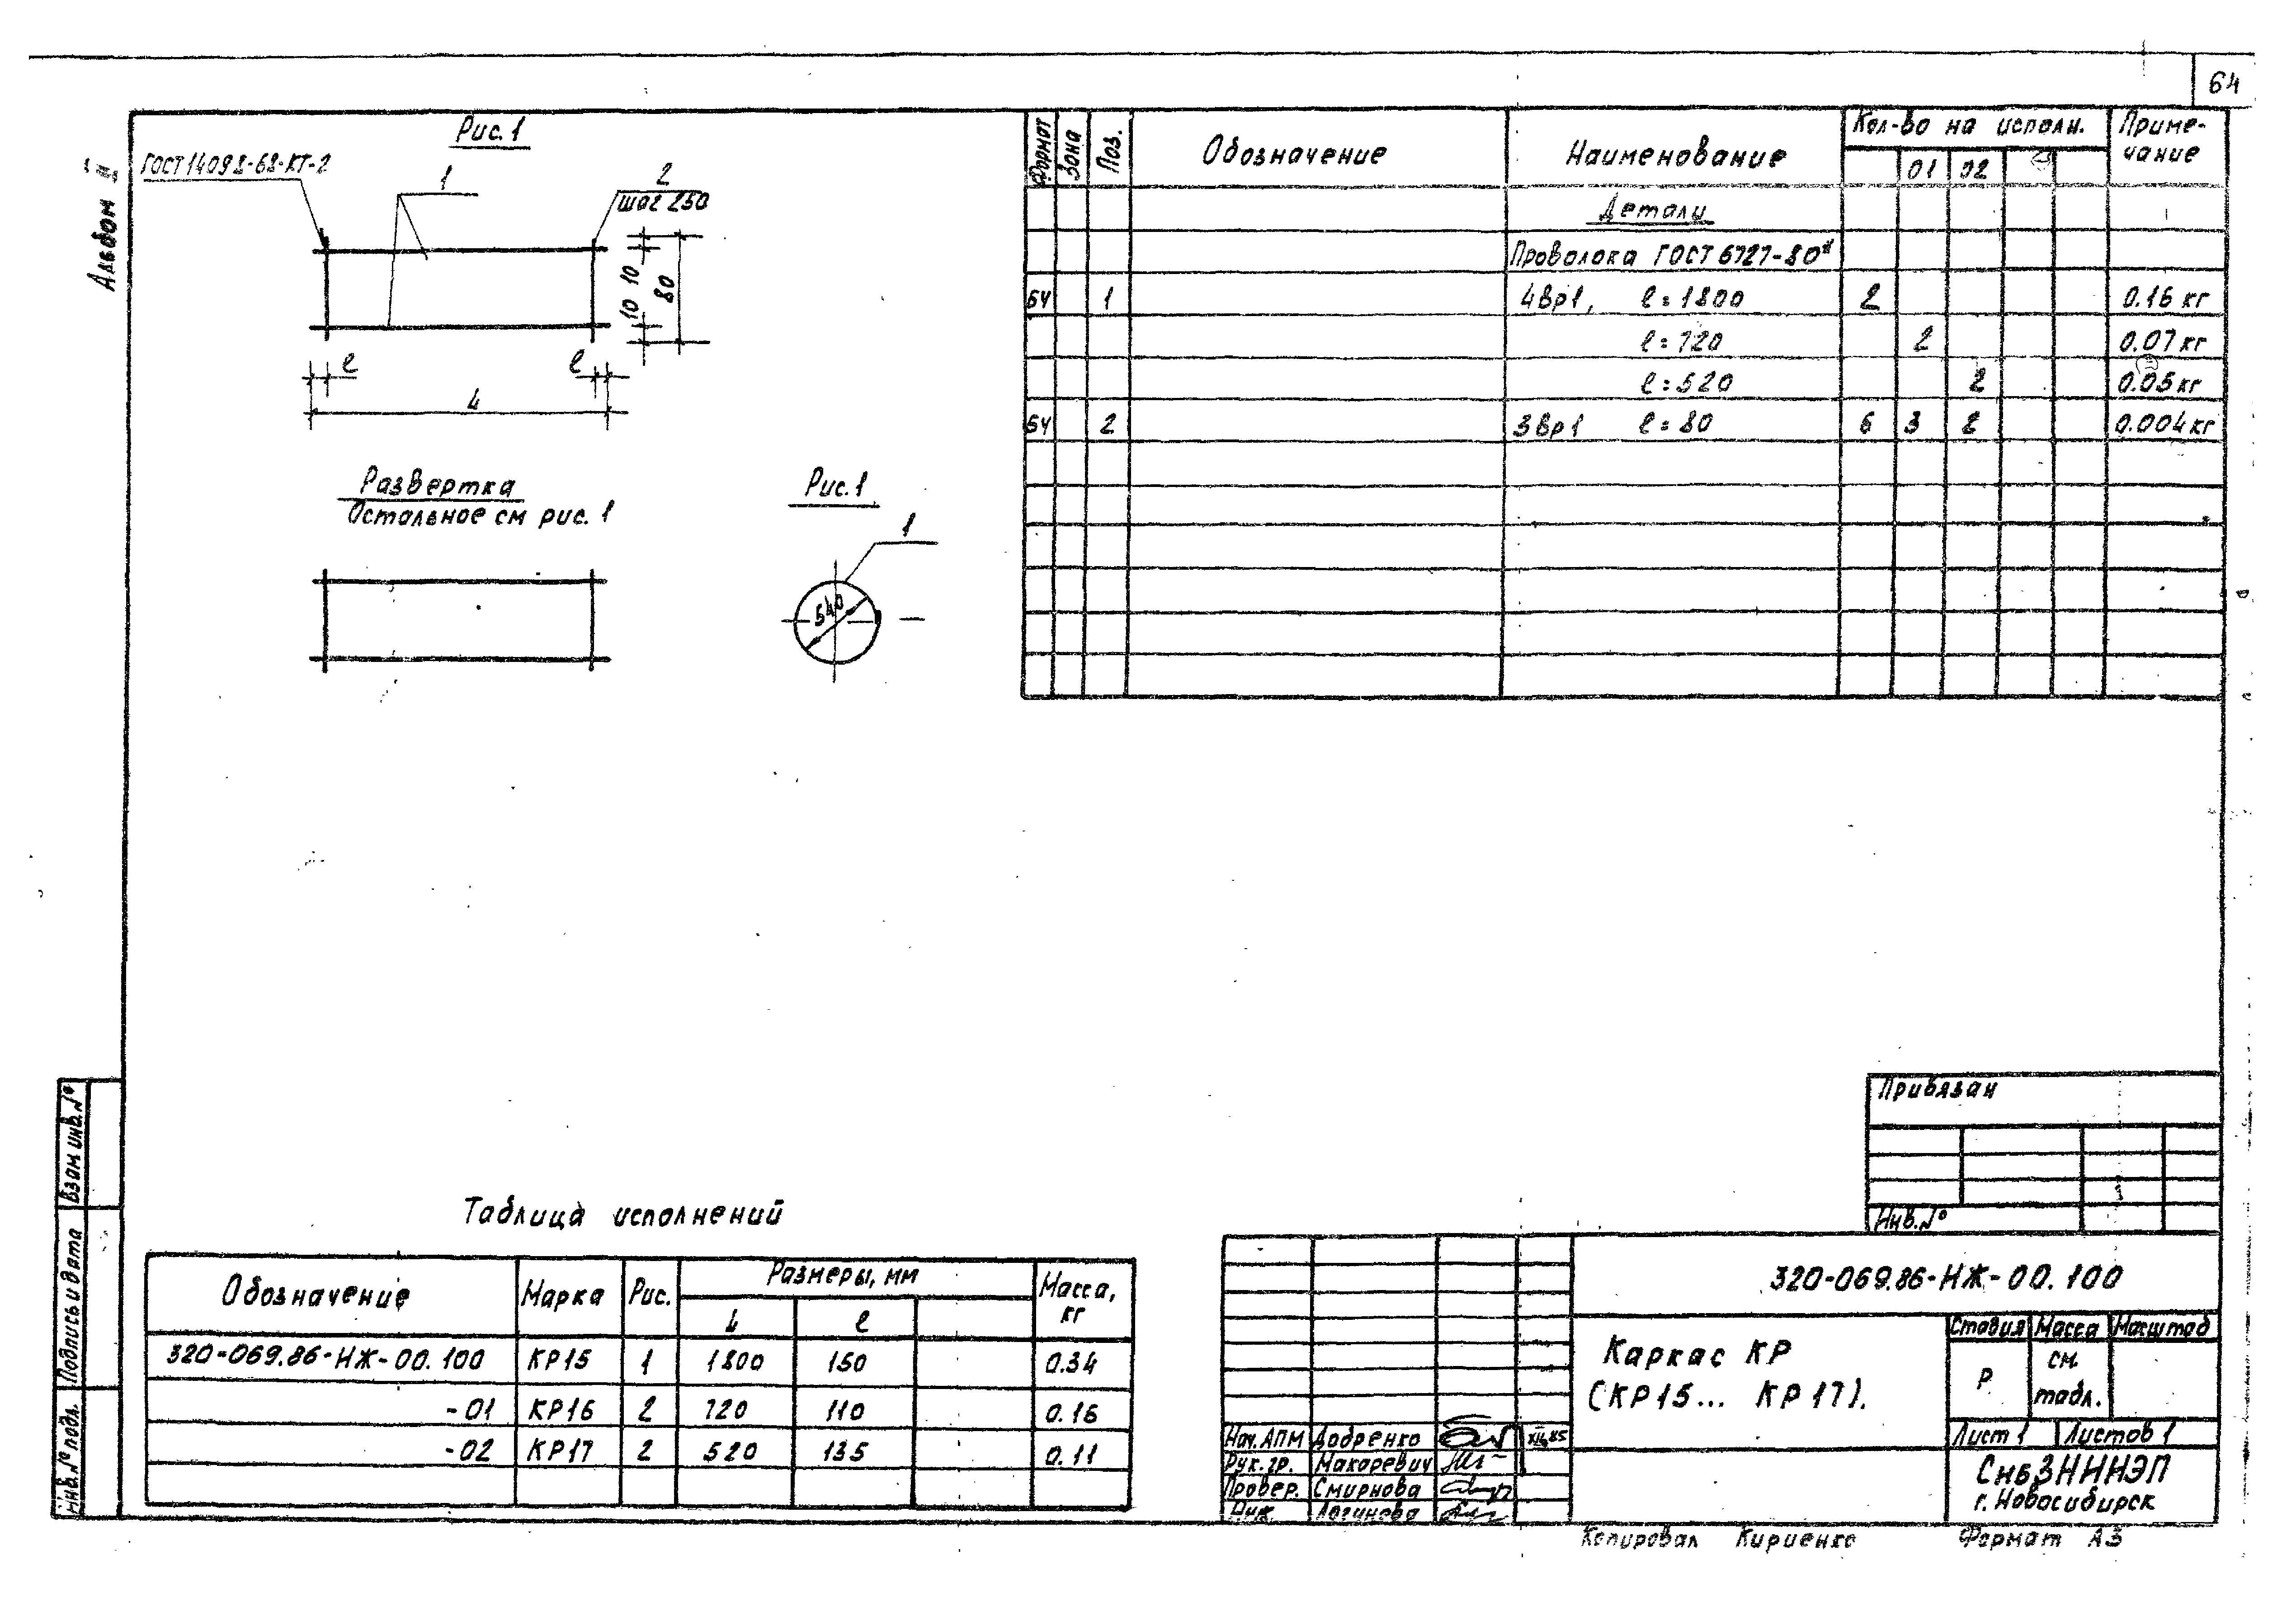 64
Альбом
Рис. 1
ГОСТ 14098-68-КТ-2
1
2
шаг 250
10 10
80
ℓ ℓ
L
Развертка
Остальное см рис. 1
Рис. 1
1
540
Формат Зона Поз. Обозначение Наименование Кол-во на исполн. Приме-
чание
01 02
Детали
Проволока ГОСТ 6727-80*
БЧ 1 4Вр1, ℓ=1800 2 0.16 кг
ℓ=720 2 0.07 кг
ℓ=520 2 0.05 кг
БЧ 2 3Вр1 ℓ=80 6 3 2 0.004 кг
Привязан
Инв. №
Взам инв. №
Подпись и дата
Инв. № подл.
Таблица исполнений
Обозначение Марка Рис. Размеры, мм Масса,
кг
L ℓ
320-069.86-НЖ-00.100 КР15 1 1800 150 0.34
-01 КР16 2 720 110 0.16
-02 КР17 2 520 135 0.11
320-069.86-НЖ-00.100
Каркас КР
(КР15... КР17).
Стадия Масса Масштаб
Р см.
табл.
Лист 1 Листов 1
СибЗНИИЭП
г. Новосибирск
Нач. АПМ Додренко XII.85
Рук. гр. Макаревич
Провер. Смирнова
Инж. Логинова
Копировал Кириенко Формат А3